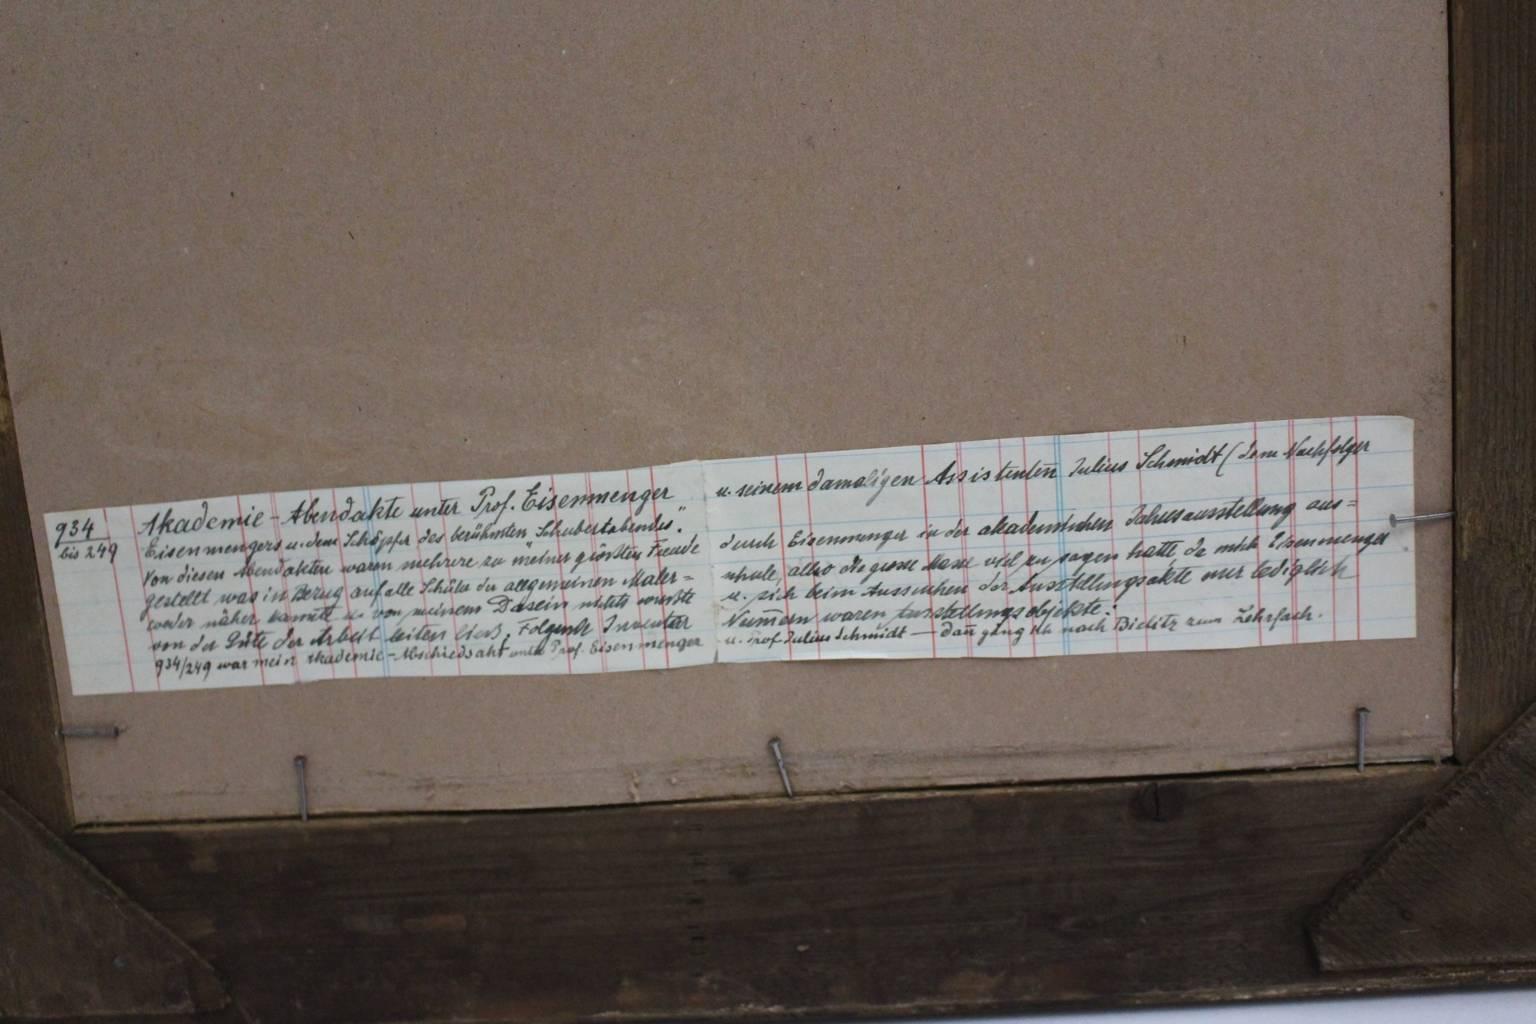 934 Akademie-Abendakte unter Prof. Eisenmenger u. seinem damaligen Assistenten Julius Schmidt (dem Nachfolger
bis 249 Eisenmengers u. dem Schöpfer des berühmten "Schubertabendes".
Von diesen Abendakten waren mehrere zu meiner größten Freude durch Eisenmenger in der akademischen Jahresausstellung aus=
gestellt was in Bezug auf alle Schüler der allgemeinen Maler= schule, also die grosse Masse viel zu sagen hatte da mich Eisenmenger
weder näher kannte u. von meinem Dasein nichts wusste u. sich beim Aussuchen der Ausstellungsakte nur lediglich
von der Güte der Arbeit leiten liess. Folgende Inventar Nummern waren Ausstellungsobjekte:
934/249 war mein Akademie-Abschiedsakt unter Prof. Eisenmenger u. Prof. Julius Schmidt — dann ging ich nach Bielitz zum Lehrfach.